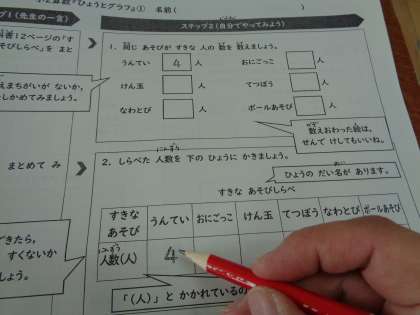 小2算数『ひょうとグラフ』① 名前(
プ1(先生の一言)
ステップ2(自分でやってみよう)
科書12ページの「す
そびしらべ」を まと
えまちがいが ないか、
しかめてみましょう。
まとめて み
できたら、
すくないか
しょう。
1. 同じ あそびが すきな 人の 数を 数えましょう。
うんてい 4 人 おにごっこ 人
けん玉 人 てつぼう 人
なわとび 人 ボールあそび 人
数えおわった絵は、
せんで けしてもいいね。
2. しらべた 人数を 下の ひょうに かきましょう。
ひょうの だい名が あります。
すきな あそびしらべ
すきな あそび うんてい おにごっこ けん玉 てつぼう なわとび ボールあそび
人数(人) 4
「(人)」と かかれているの